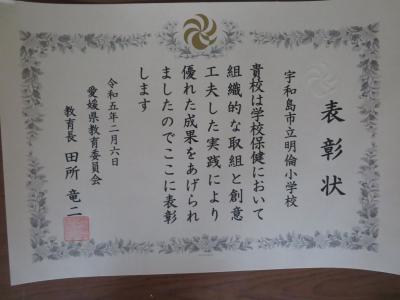 表彰状
宇和島市立明倫小学校
貴校は学校保健において
組織的な取組と創意
工夫した実践により
優れた成果をあげられ
ましたのでここに表彰
します
令和五年二月六日
愛媛県教育委員会
教育長 田所竜二